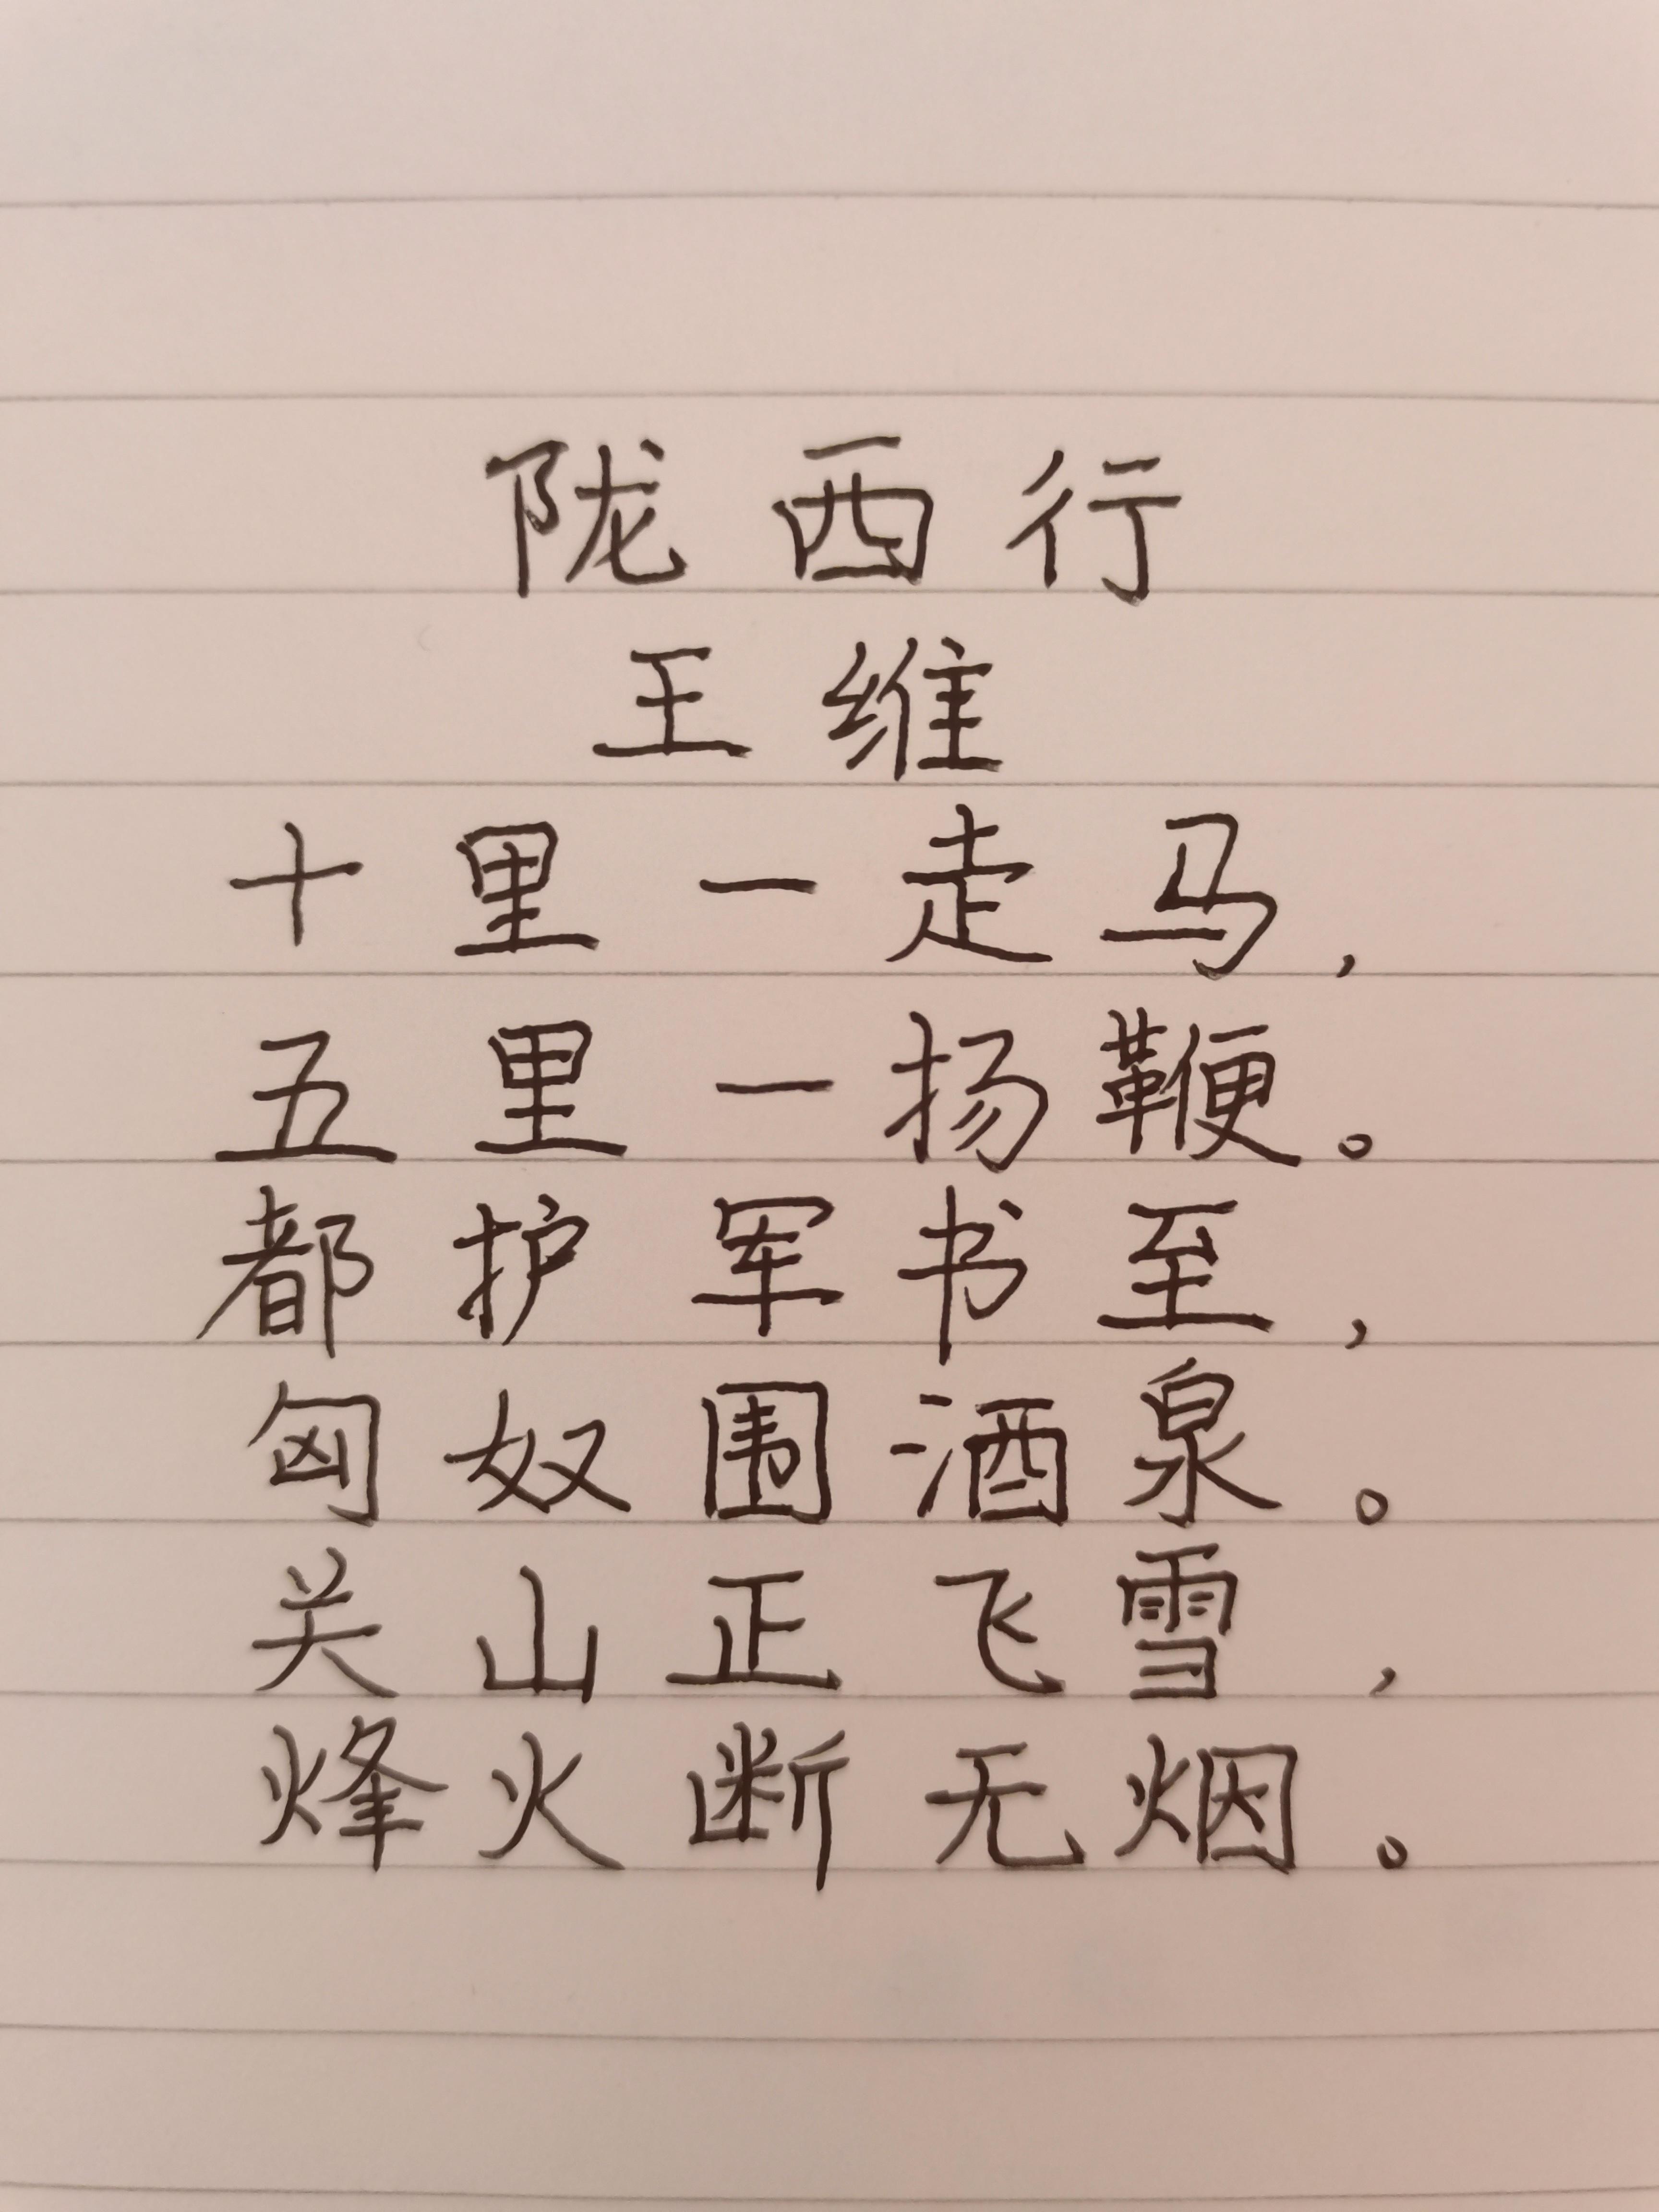 陇西行
王维
十里一走马，
五里一扬鞭。
都护军书至，
匈奴围酒泉。
关山正飞雪，
烽火断无烟。